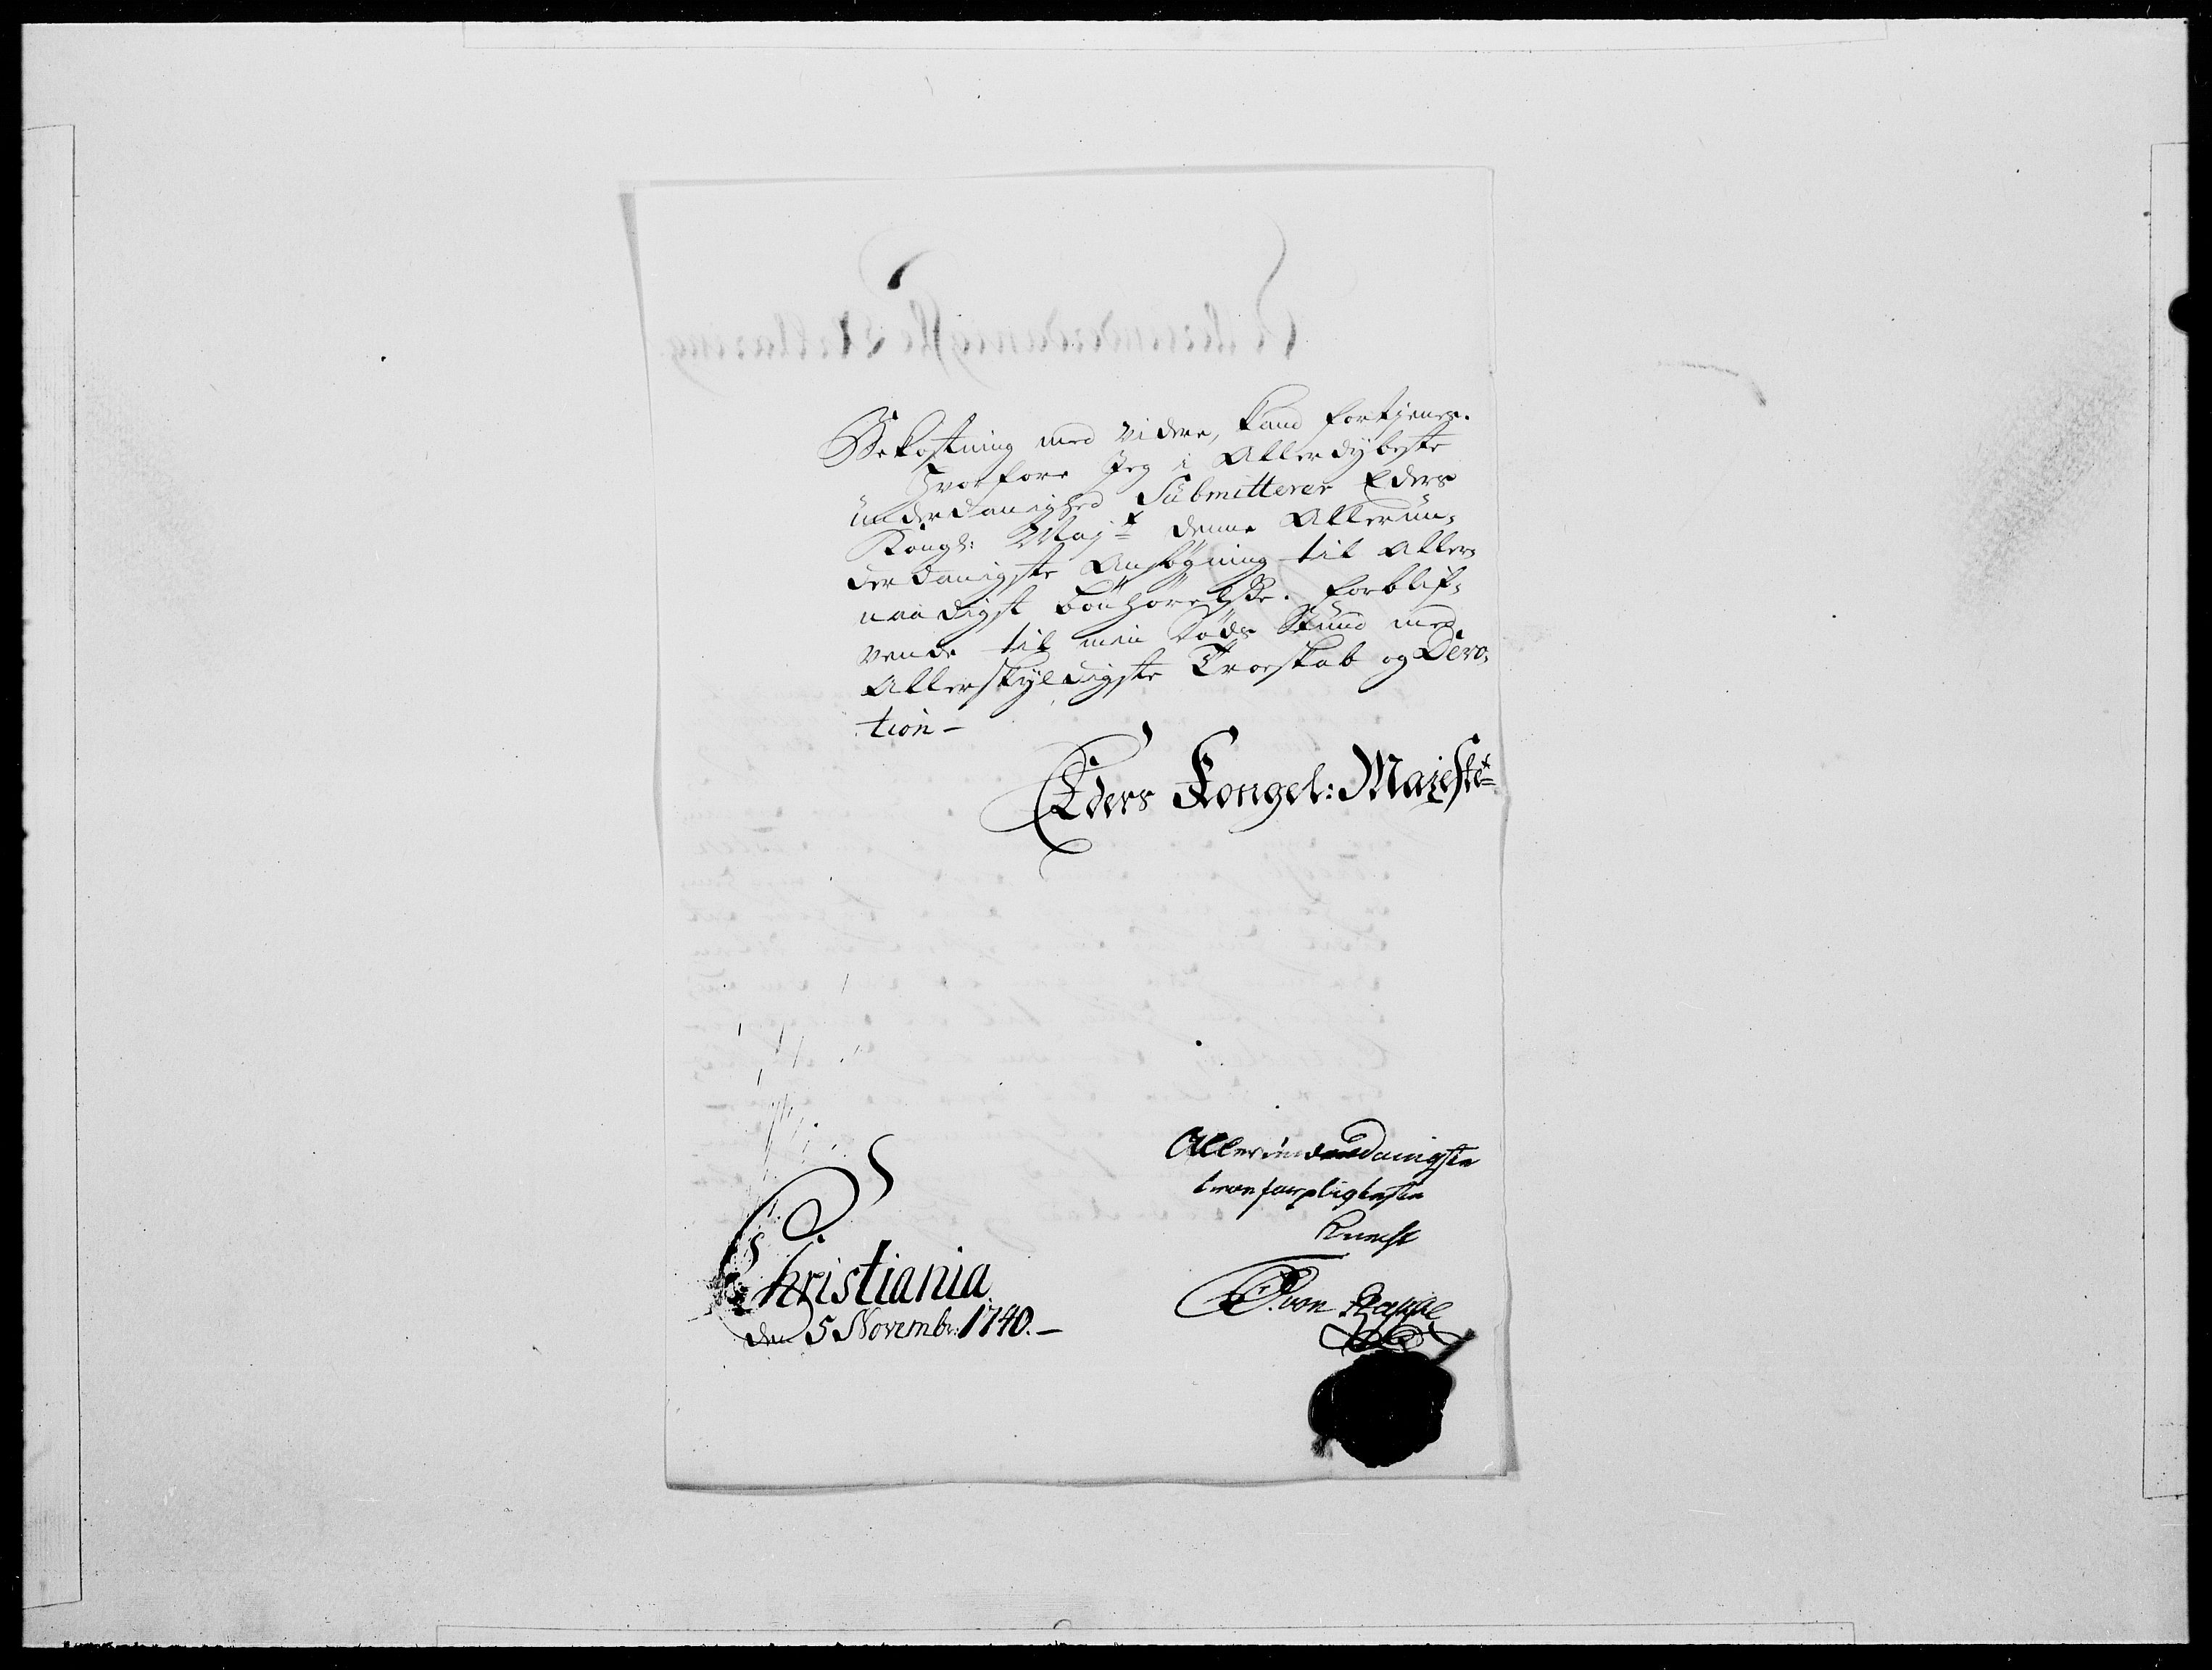 Bekostning med videre, kand fortjenes.
Hvorfore Jeg i Allerdybeste
ünderdanighed Submitterer Eders
Kongl: Majt denne Allerün-
derdanigste Ansøgning til Aller-
naadigst bönhörelsse. forblif-
vende til min Döds Stund med
Allerskyldigste Troeskab og Devo-
tion-
Eders Kongel: Majestet
Allerunderdanigste
troe forpligteste
Knecht
von Rappe
Christiania
den 5 Novembr: 1740.-